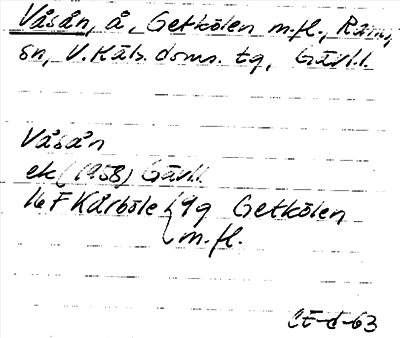 Våsån, å, Getkölen m.fl., Rams.
sn, V. Häls. doms. tg, Gävl.l.
Våsån
ek (1958) Gävl.l.
16 F Kårböle 49 Getkölen
m.fl.